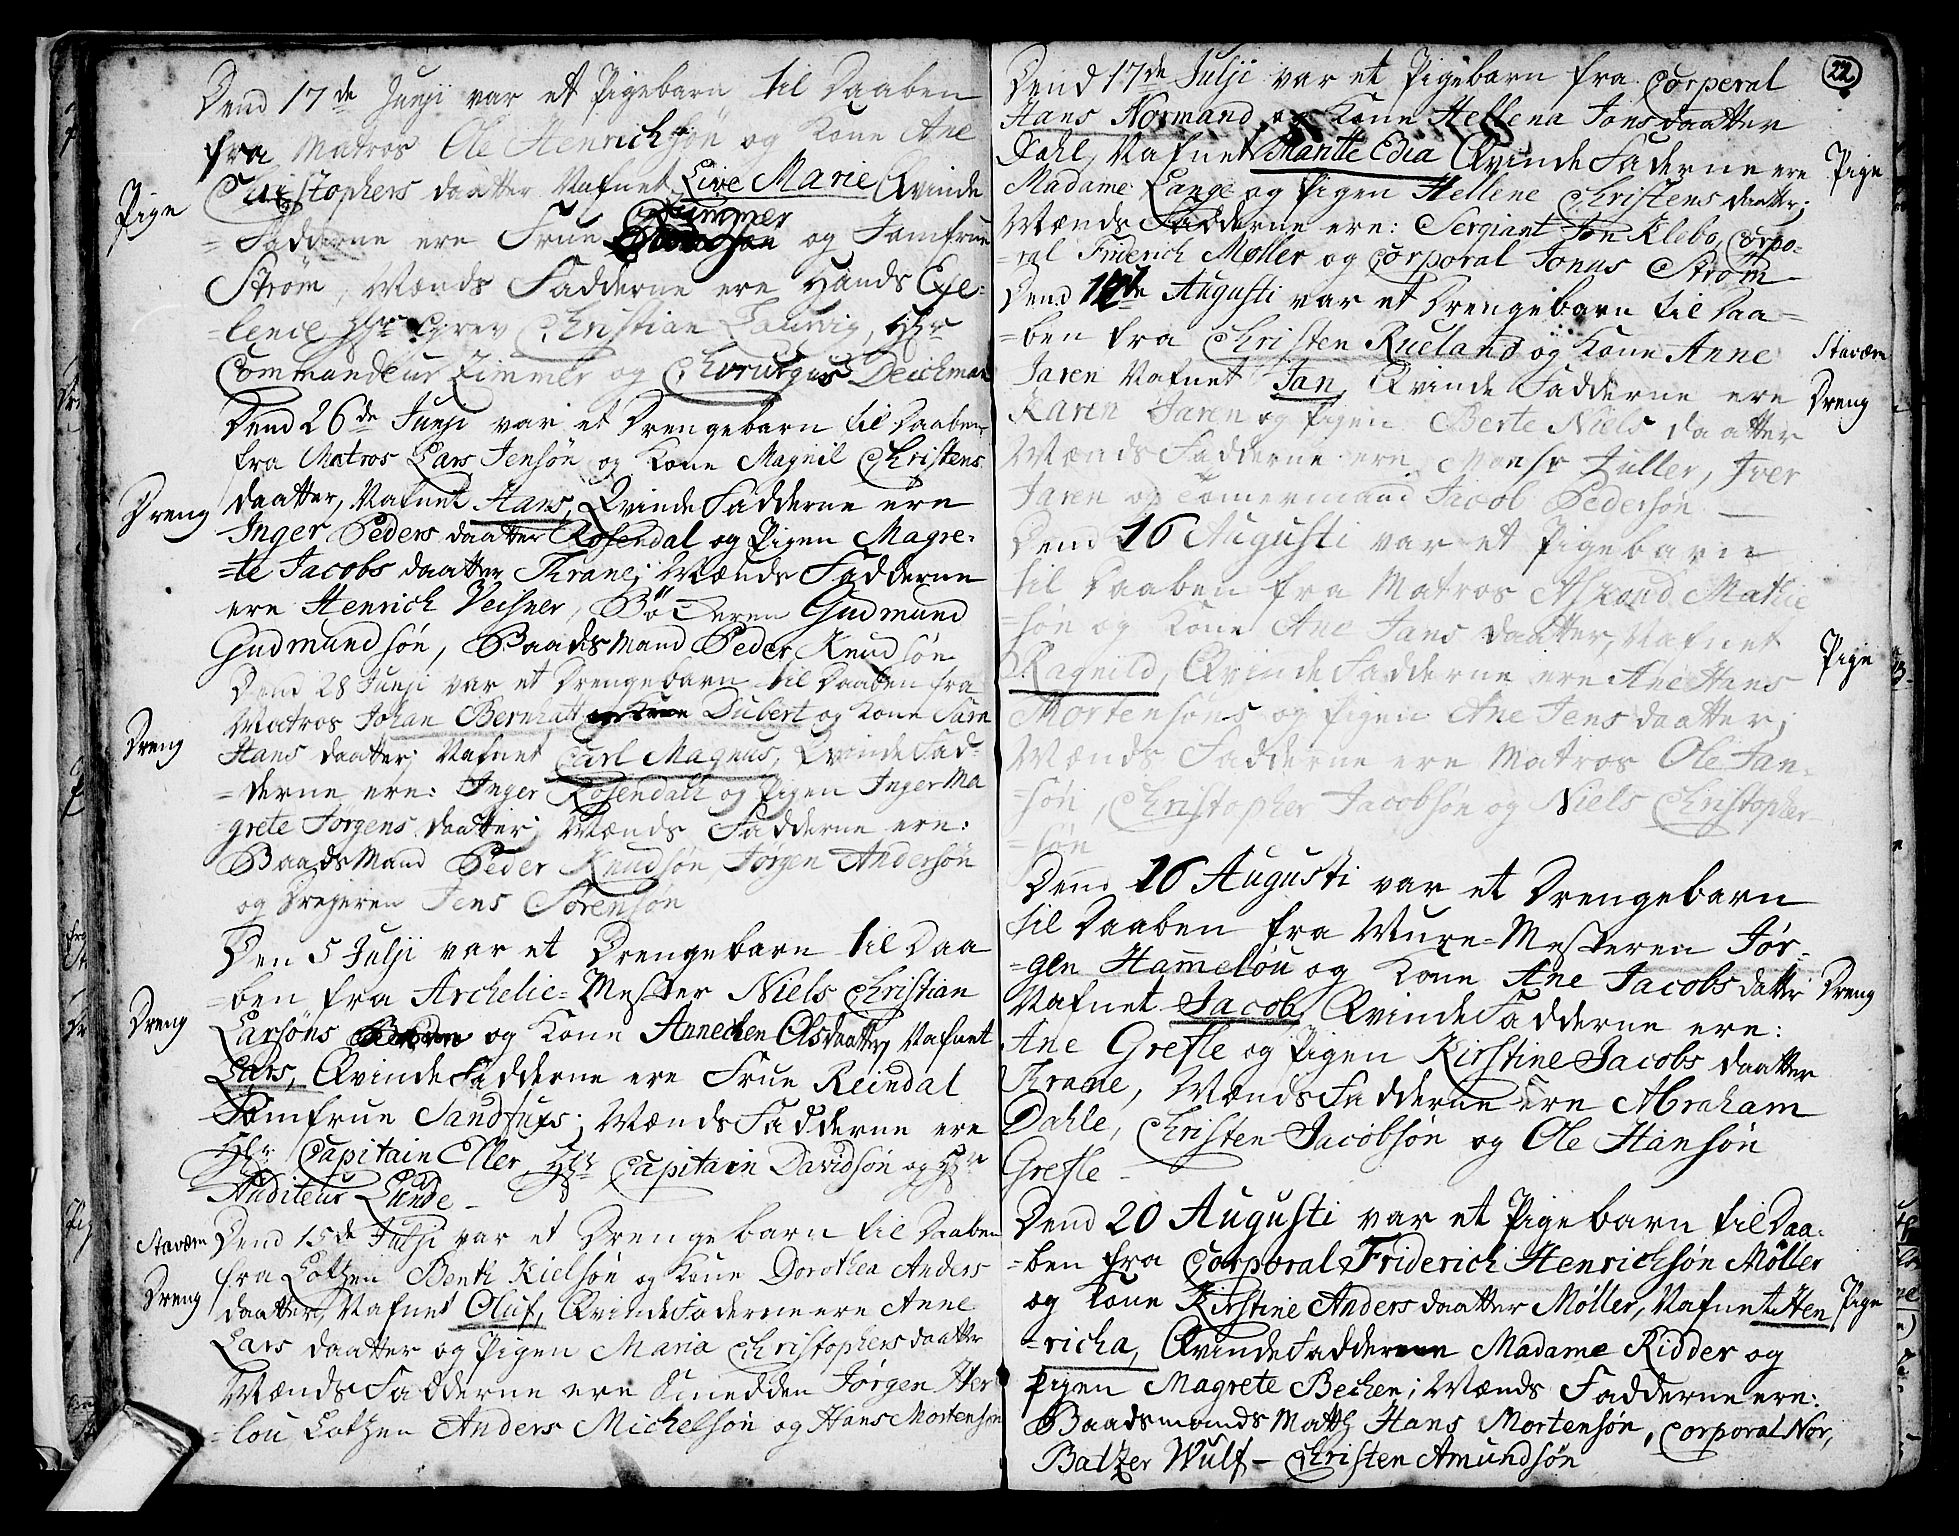 Dend 17de Junji var et Pigebarn til Daaben
fra Matros Ole Henrichsøn og Kone Ane
Pige
Christophers daatter Nafnet Live Marie Qvinde
Zimmer
=Fadderne ere Frue og Jomfrue
Strøm, Mænds Fadderne ere Hands Exe=
=lence Hr Grev Christian Laurvig, Hr
Commandeur Zimmer og Chirurgus Deichman
Dend 26de Junji var et Drengebarn til Daaben
fra Matros Lars Jensøn og Kone Magnil Christens
Dreng
daatter, Nafnet Hans, Qvinde Fadderne ere
Inger Peders daatter Rosendal og Pigen Magre=
=te Jacobs daatter Thrane; Mænds Fadderne
ere Henrich Veisner, Bøderen Gudmund
Gudmundsøn, Baadsmand Peder Knudsøn
Dend 28 Junji var et Drengebarn til Daaben fra
Matros Johan Bernhatt Dubert og Kone Sara
Dreng
Hans daatter; Nafnet Carl Magnus, Qvinde Fad=
=derne ere: Inger Rosendall og Pigen Inger Ma
grete Jørgens daatter; Mænds Fadderne ere:
Baadsmand Peder Knudsøn, Jørgen Andersøn
og Dreyeren Jens Sørensøn
Den 5 Julji var et Drengebarn til Daa
=ben fra Archelie=Mester Niels Christian
Dreng
Larsøns og Kone Annechen Olsdaatter, Nafnet
Lars, Qvinde Fadderne ere Frue Reindal
Jomfrue Sandfuss; Mænds Fadderne ere
Hr Capitain Eller, Hr Capitain Davidsøn og Hr
Auditeur Lunde -
Staværn
Dend 15de Julji var et Drengebarn til Daaben
fra Lotzen Benth Kielsøn og Kone Dorothea Anders
Dreng
daatter, Nafnet Oluf, Qvinde Faderne ere Anne
Lars daatter og Pigen Maria Christophers daatter
Mænds Fadderne ere Smedden Jørgen Her
=lou Lotzen Anders Michelsøn og Hans Mortensøn
22
Dend 17de Julji var et Pigebarn fra Corperal
Hans Normand og Kone Hellena Jons daatter
Dahl, Nafnet Mantte Edia Qvinde Faderne ere
Pige
Madame Lange og Pigen Hellene Christens daatter;
Mænds Fadderne ere: Sergiant Jon Klebo, Corpo=
=ral Friderich Møller og Corporal Jonas Strøm
Dend Augusti var et Drengebarn til Daa=
=ben fra Christen Rueland og Kone Anne
Staværn
Jaren Nafnet Jan, Qvinde Fadderne ere
Dreng
Karen Jaren og Pigen Berte Niels daatter
Mænds Fadderne ere Monsr Zuller, Iver
Jaren og Tømermand Jacob Pedersøn
Dend 16 Augusti var et Pigebarn
til Daaben fra Matros Aslaond Mathie
=søn og Kone Ane Jans daatter, Nafnet
Pige
Ragnild, Qvinde Fadderne ere Ane Hans
Mortensøns og Pigen Ane Jens daatter;
Mænds Fadderne ere Matros Ole Jan=
=søn, Christopher Jacobsøn og Niels Christopher
=søn
Dend 16 Augusti var et Drengebarn
til Daaben fra Mure=Mesteren Jør=
=gen Hammelou og Kone Ane Jacobs datter
Dreng
Nafnet Jacob, Qvinde Fadderne ere:
Ane Grefle og Pigen Kirstine Jacobs daatter
Thrane, Mænds Fadderne ere Abraham
Dahle, Christen Jacobsøn og Ole Hansøn
Grefle -
Dend 20 Augusti var et Pigebarn til Daa=
=ben fra Corporal Friderich Henrichsøn Møller
og Kone Kirstine Anders daatter Møller, Nafnet Hen
Pige
=richa, Qvinde Fadderne Madame Ridder og
Pigen Magrete Bechen; Mænds Fadderne ere:
Baadsmands Matth Hans Mortensøn, Corporal Nor,
Baltzer Wulf - Christen Amundsøn